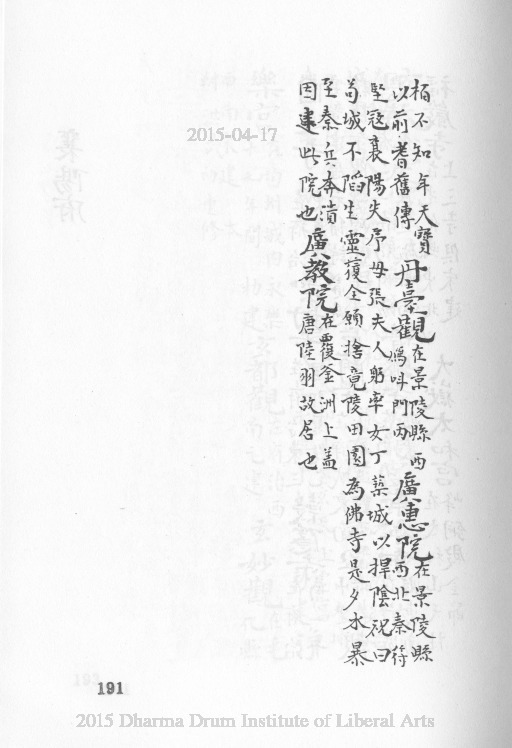 栢不知年天寶
以前耆舊傳
丹臺觀
在景陵縣西
鴻呌門內
廣惠院
在景陵縣
西北秦苻
堅寇襄陽失序母張夫人躬率女丁築城以捍陰祝曰
苟城不陷生靈獲全願捨竟陵田園為佛寺是夕水暴
至秦兵奔潰
因建此院也
廣教院
在覆釜洲上蓋
唐陸羽故居也
2015-04-17
191
2015 Dharma Drum Institute of Liberal Arts